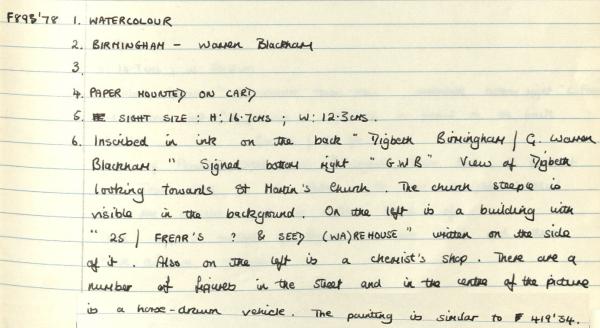 F893'78 1. WATERCOLOUR
2. BIRMINGHAM – Warren Blackham
3.
4. PAPER MOUNTED ON CARD
5. SIGHT SIZE : H: 16.7CMS ; W: 12.3CMS.
6. Inscribed in ink on the back "Digbeth Birmingham / G. Warren
Blackham." Signed bottom right "G.W.B" View of Digbeth
looking towards St Martin's Church. The church steeple is
visible in the background. On the left is a building with
"25 / FREAR'S ? & SEED (WA)REHOUSE" written on the side
of it. Also on the left is a chemist's shop. There are a
number of figures in the street and in the centre of the picture
is a horse-drawn vehicle. The painting is similar to F 419'34.